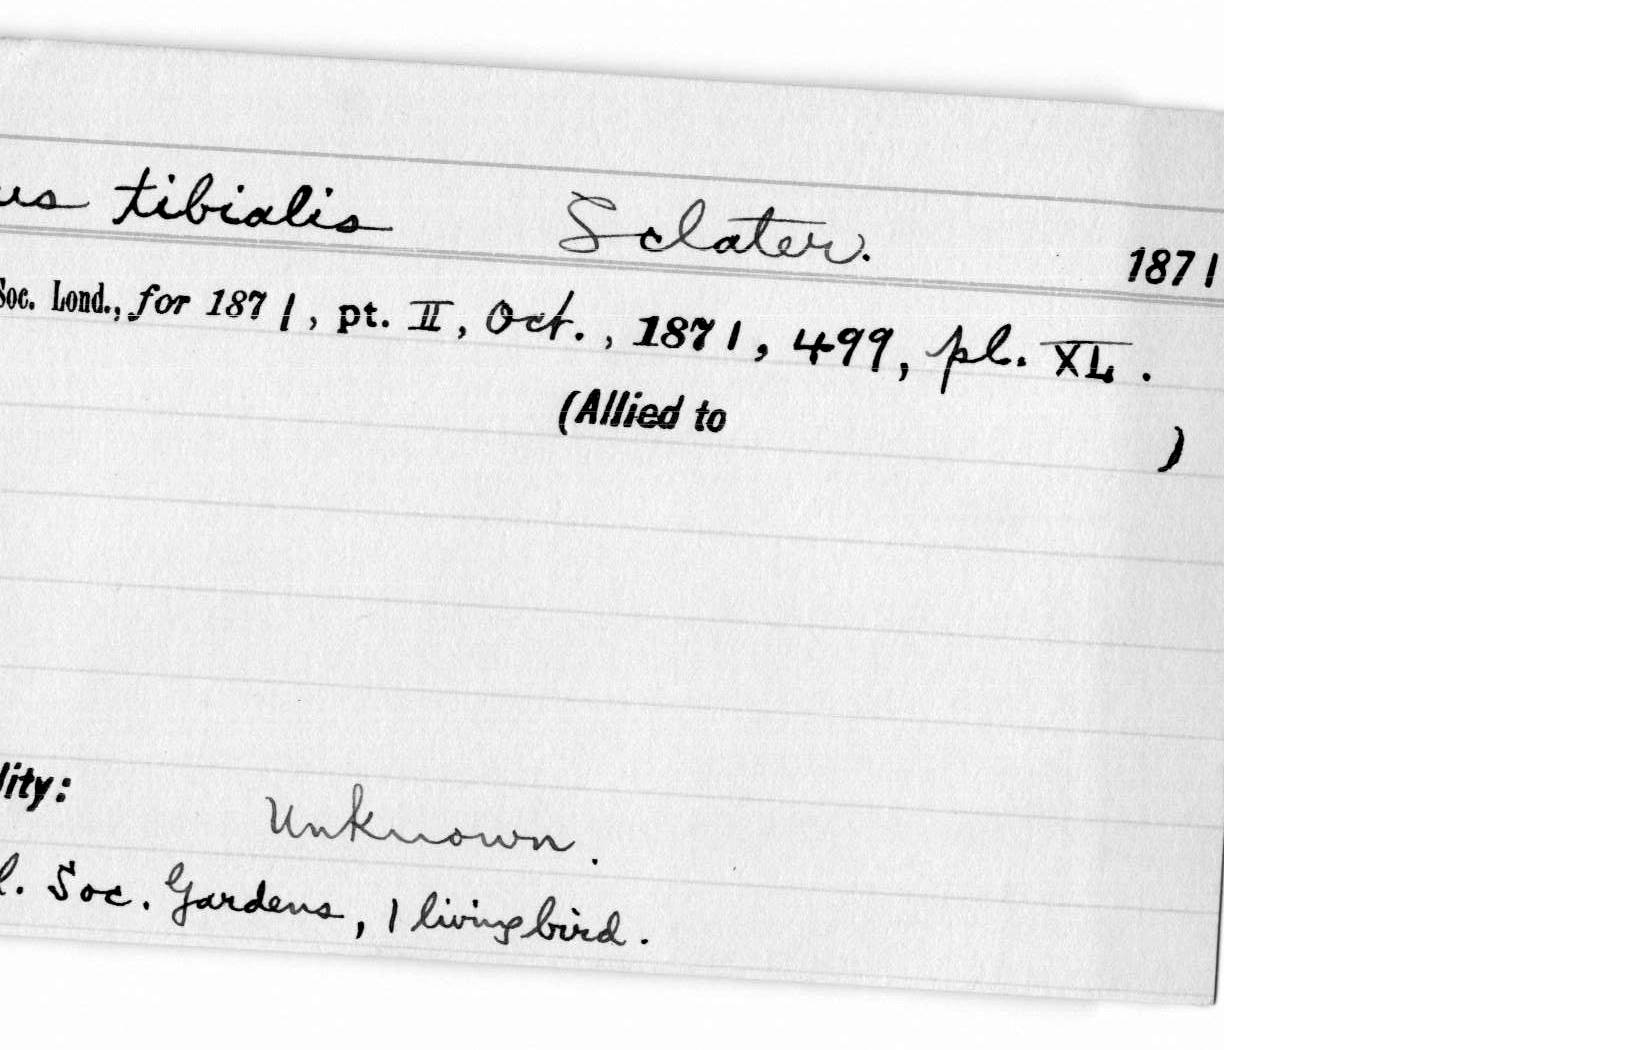 us tibialis Sclater. 1871
Soc. Lond., for 1871, pt. II, Oct., 1871, 499, pl. XL.
(Allied to )
lity: Unknown.
l. Soc. Gardens, 1 living bird.